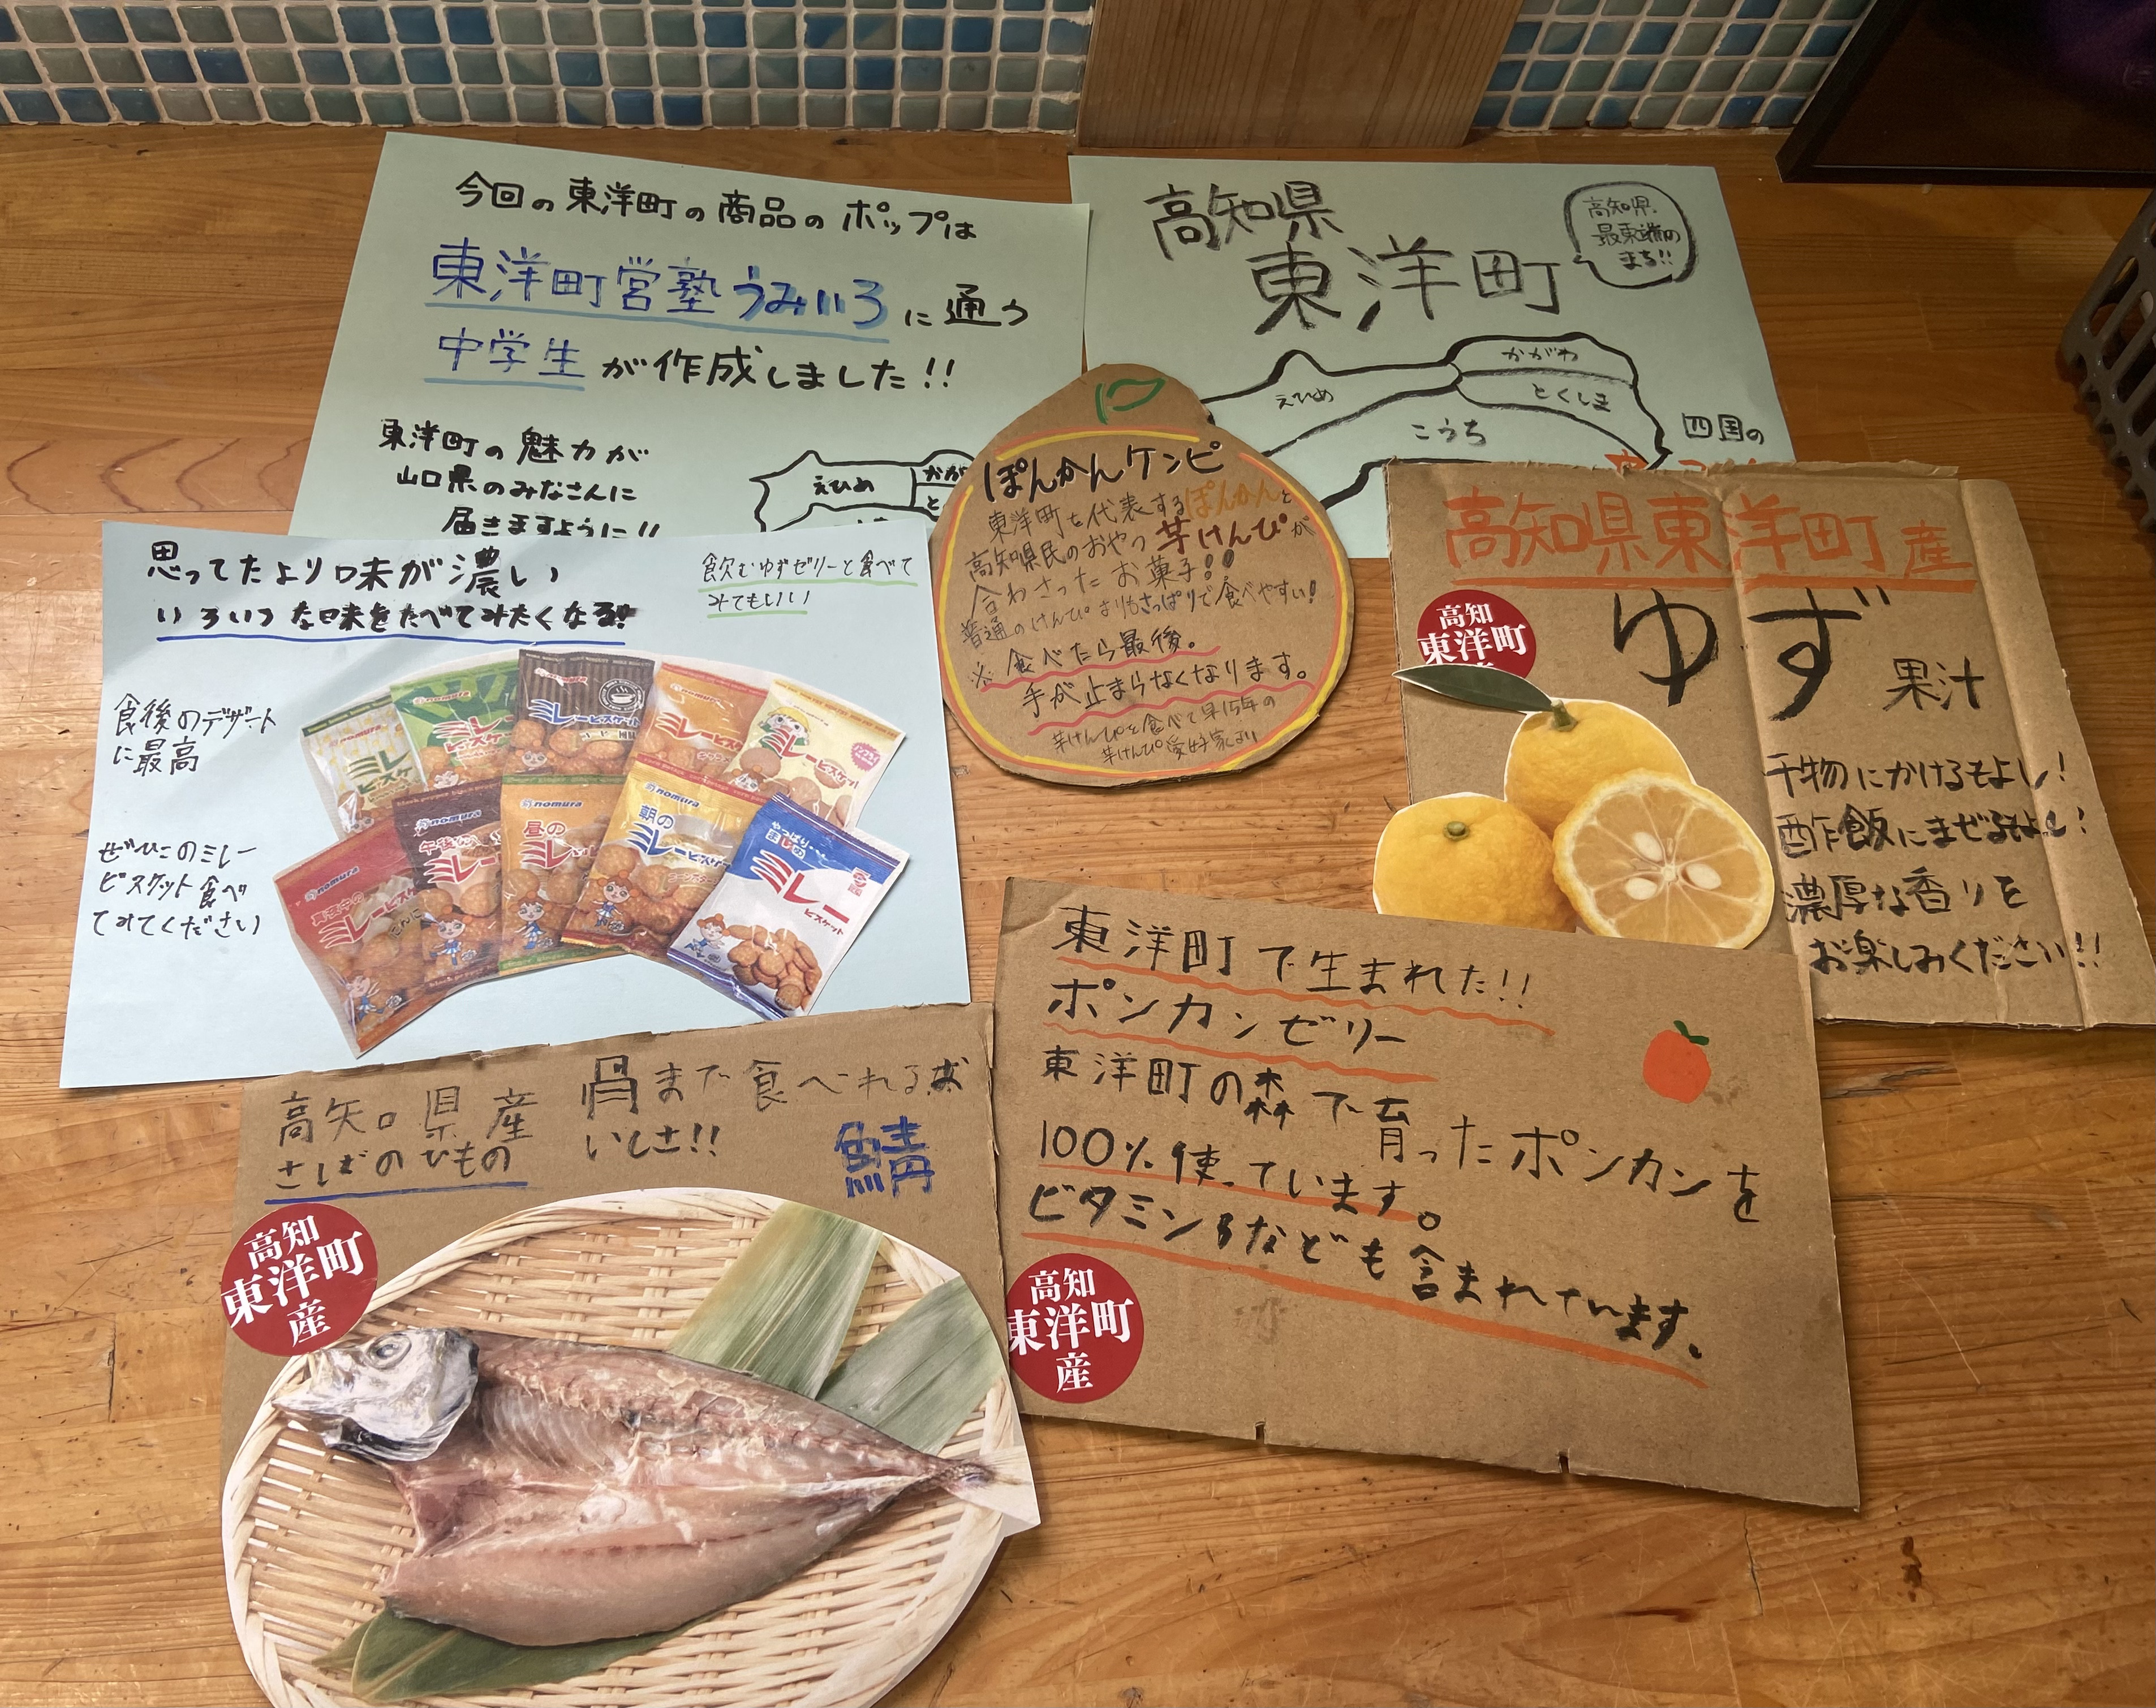 今回の東洋町の商品のポップは
東洋町営塾うみいろに通う
中学生が作成しました!!
東洋町の魅力が
山口県のみなさんに
届きますように!!
えひめ
かが
と
高知県
東洋町
高知県
最東端の
まち!!
かがわ
えひめ
とくしま
こうち
四国の
ぽんかんケンピ
東洋町を代表するぽんかんと
高知県民のおやつ芋けんぴが
合わさったお菓子!!
普通のけんぴよりもさっぱりで食べやすい!
※食べたら最後。
手が止まらなくなります。
芋けんぴを食べて早15年の
芋けんぴ愛好家より
高知県東洋町産
ゆず果汁
高知
東洋町
干物にかけるもよし!
酢飯にまぜるもよし!
濃厚な香りを
お楽しみください!!
思ってたより味が濃い
いろいろな味をたべてみたくなる!
飲むゆずゼリーと食べて
みてもいい
食後のデザート
に最高
ぜひこのミレー
ビスケット食べ
てみてください
nomura
ミレービスケット
nomura
昼の
ミレー
nomura
朝の
ミレービスケット
まじめ
ミレー
ビスケット
東洋町で生まれた!!
ポンカンゼリー
東洋町の森で育ったポンカンを
100%使っています。
ビタミンBなども含まれています。
高知
東洋町
産
高知県産
さばのひもの
骨まで食べれるお
いしさ!!
鯖
高知
東洋町
産